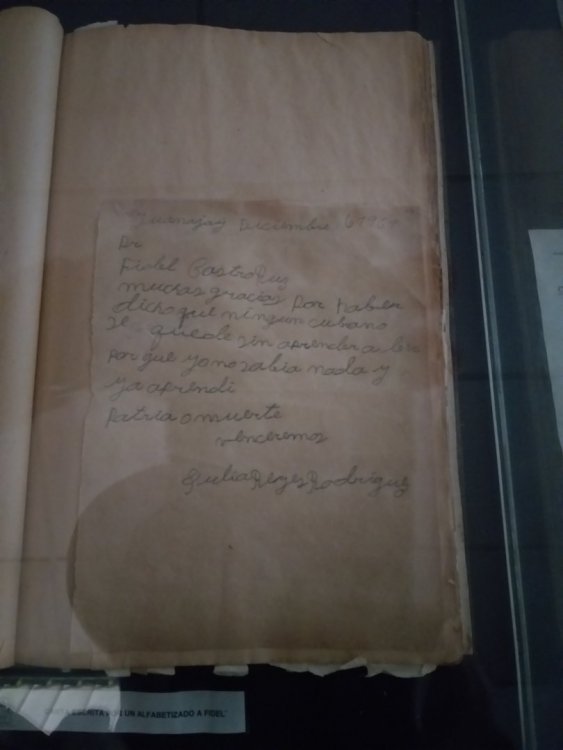 Guanajay Diciembre
Dr
Fidel Castro Ruz
muchas gracias por haber
dicho que ningun cubano
se quede sin aprender a leer
por que yo no sabia nada y
ya aprendi
Patria o muerte
venceremos
Julia Reyes Rodriguez
ESCRITA POR UN ALFABETIZADO A FIDEL"